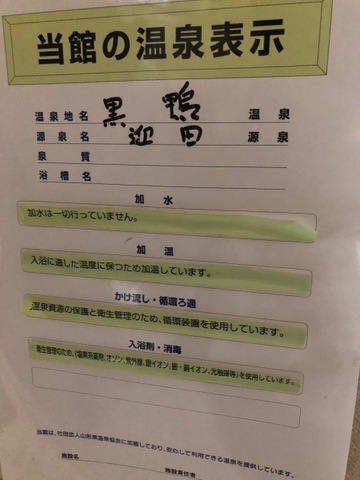 当館の温泉表示
温泉地名 黒鴨 温泉
源泉名 迎田 源泉
泉質
浴槽名
加水
加水は一切行っていません。
加温
入浴に適した温度に保つため加温しています。
かけ流し・循環ろ過
温泉資源の保護と衛生管理のため、循環装置を使用しています。
入浴剤・消毒
衛生管理のため、(塩素系薬剤、オゾン、紫外線、銀イオン、銀・銅イオン、光触媒等)を使用しています。
当館は、社団法人山形県温泉協会に加盟しており、安心して利用できる温泉を提供しています。
施設名 施設責任者